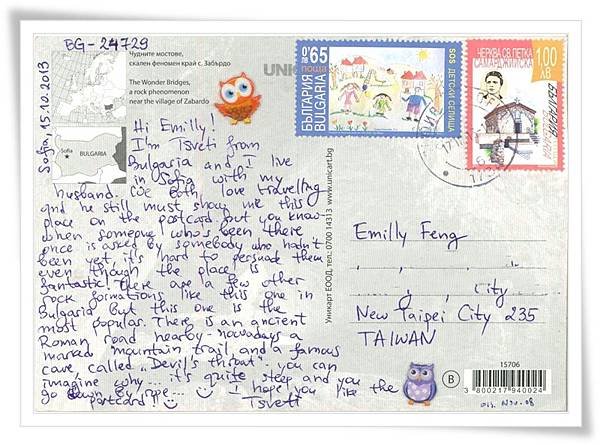 BG-24729
Sofia, 15.10.2013
Чудните мостове,
скален феномен край с. Забърдо
The Wonder Bridges,
a rock phenomenon
near the village of Zabardo
UNIC
Sofia
BULGARIA
Hi Emilly!
I'm Tsveti from
Bulgaria and I live
in Sofia with my
husband. We both love travelling
and he still must show me this
place on the postcard but you know-
when someone who's been there
once is asked by somebody who hadn't
been yet, it's hard to persuade them
even though the place is
fantastic! There are a few other
rock formations like this one in
Bulgaria but this one is the
most popular. There is an ancient
Roman road nearby - nowadays a
marked mountain trail, and a famous
cave, called "Devil's throat". You can
imagine why... it's quite steep and you
go down by rope... I hope you like the
postcard!
Tsveti
Уникарт ЕООД, тел.: 0700 14313 www.unicart.bg
0.65 ЛВ
поща
БЪЛГАРИЯ
BULGARIA
SOS ДЕТСКИ СЕЛИЩА
ЧЕРКВА СВ. ПЕТКА
САМАРДЖИЙСКА
1,00
ЛВ
БЪЛГАРИЯ
Emilly Feng
, , ,
, , City
New Taipei City 235
TAIWAN
15706
B
3 800217 940024